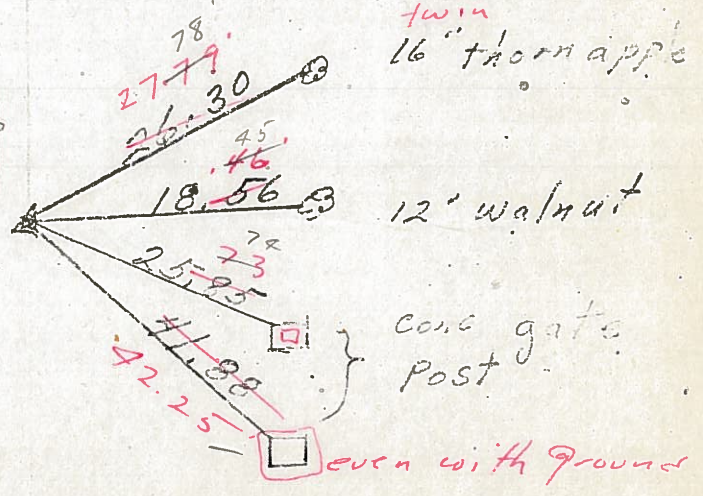 twin
16" thorn apple
78
27 79'
26.30
45
.46'
18.56
12" walnut
72
73
25.85
conc gate
Post
41.88
42.25
even with ground